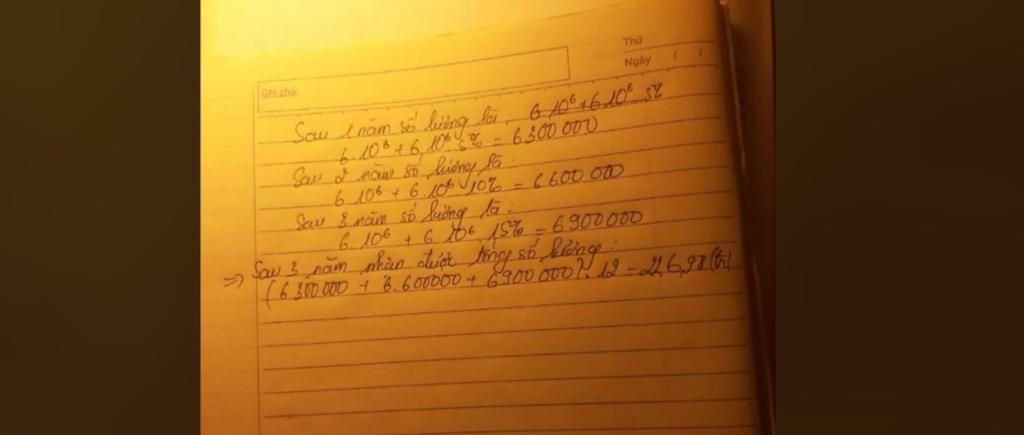 Thứ
Ngày / /
Ghi chú:
Sau 1 năm số lương là: 6.10⁶ + 6.10⁶ 5%
6.10⁶ + 6.10⁶.5% = 6300 000
Sau 2 năm số lương là
6.10⁶ + 6.10⁶.10% = 6600 000
Sau 3 năm số lương là:
6.10⁶ + 6.10⁶.15% = 6900000
=> Sau 3 năm nhận được tổng số lương:
(6300000 + 6.600000 + 6900 000).12 = 226,98 (tr)